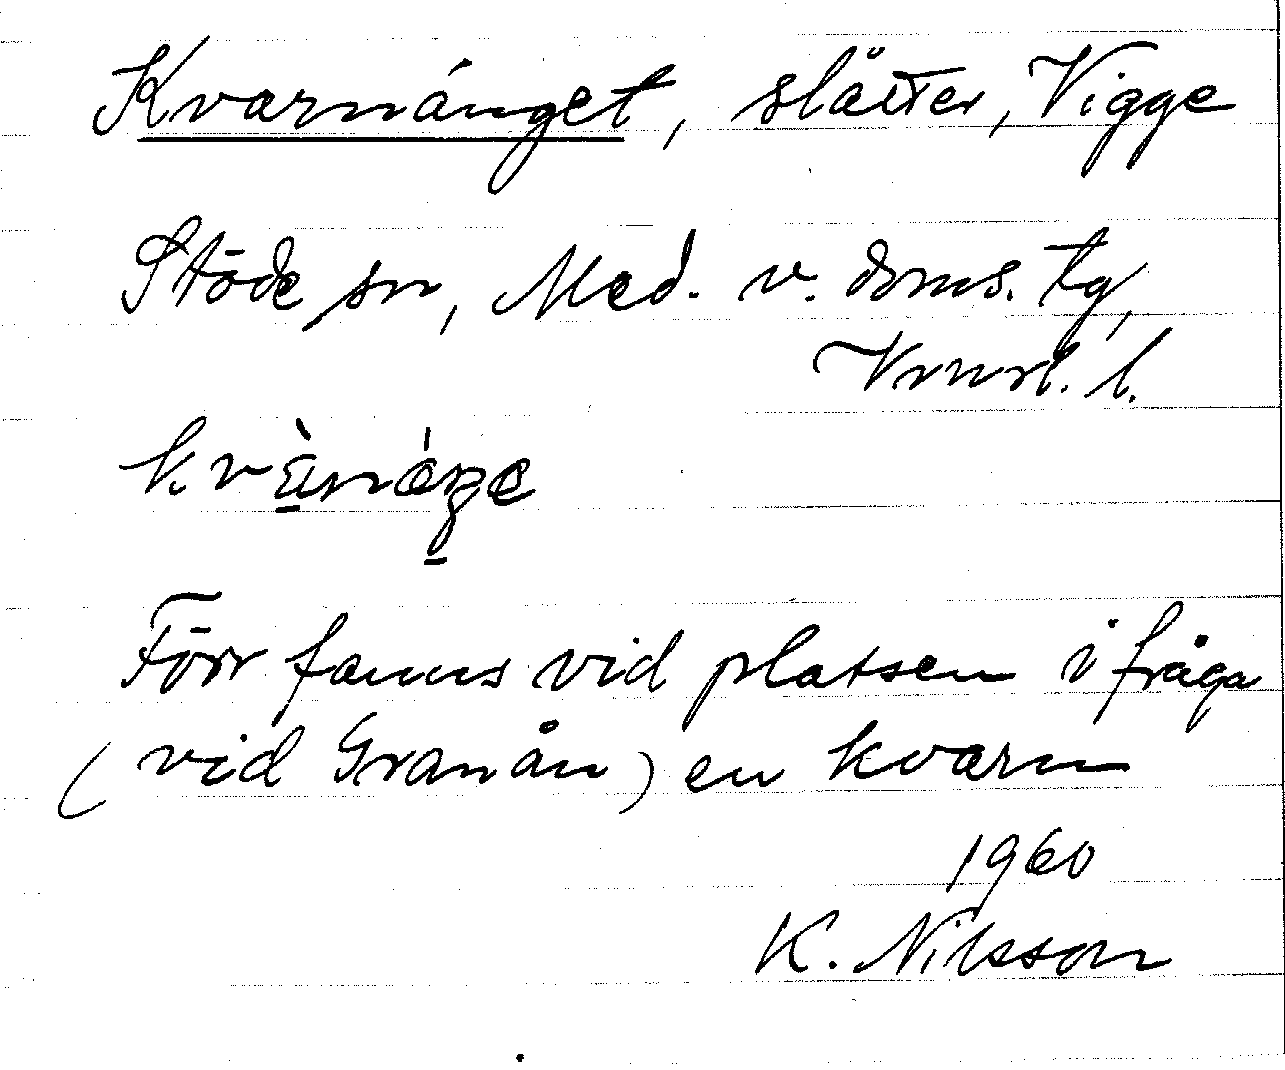 Kvarnänget, slåtter, Vigge
Stöde sn, Med. v. doms. tg,
Vrnrl. l.
Förr fanns vid platsen i fråga
(vid Granån) en kvarn
1960
K. Nilsson